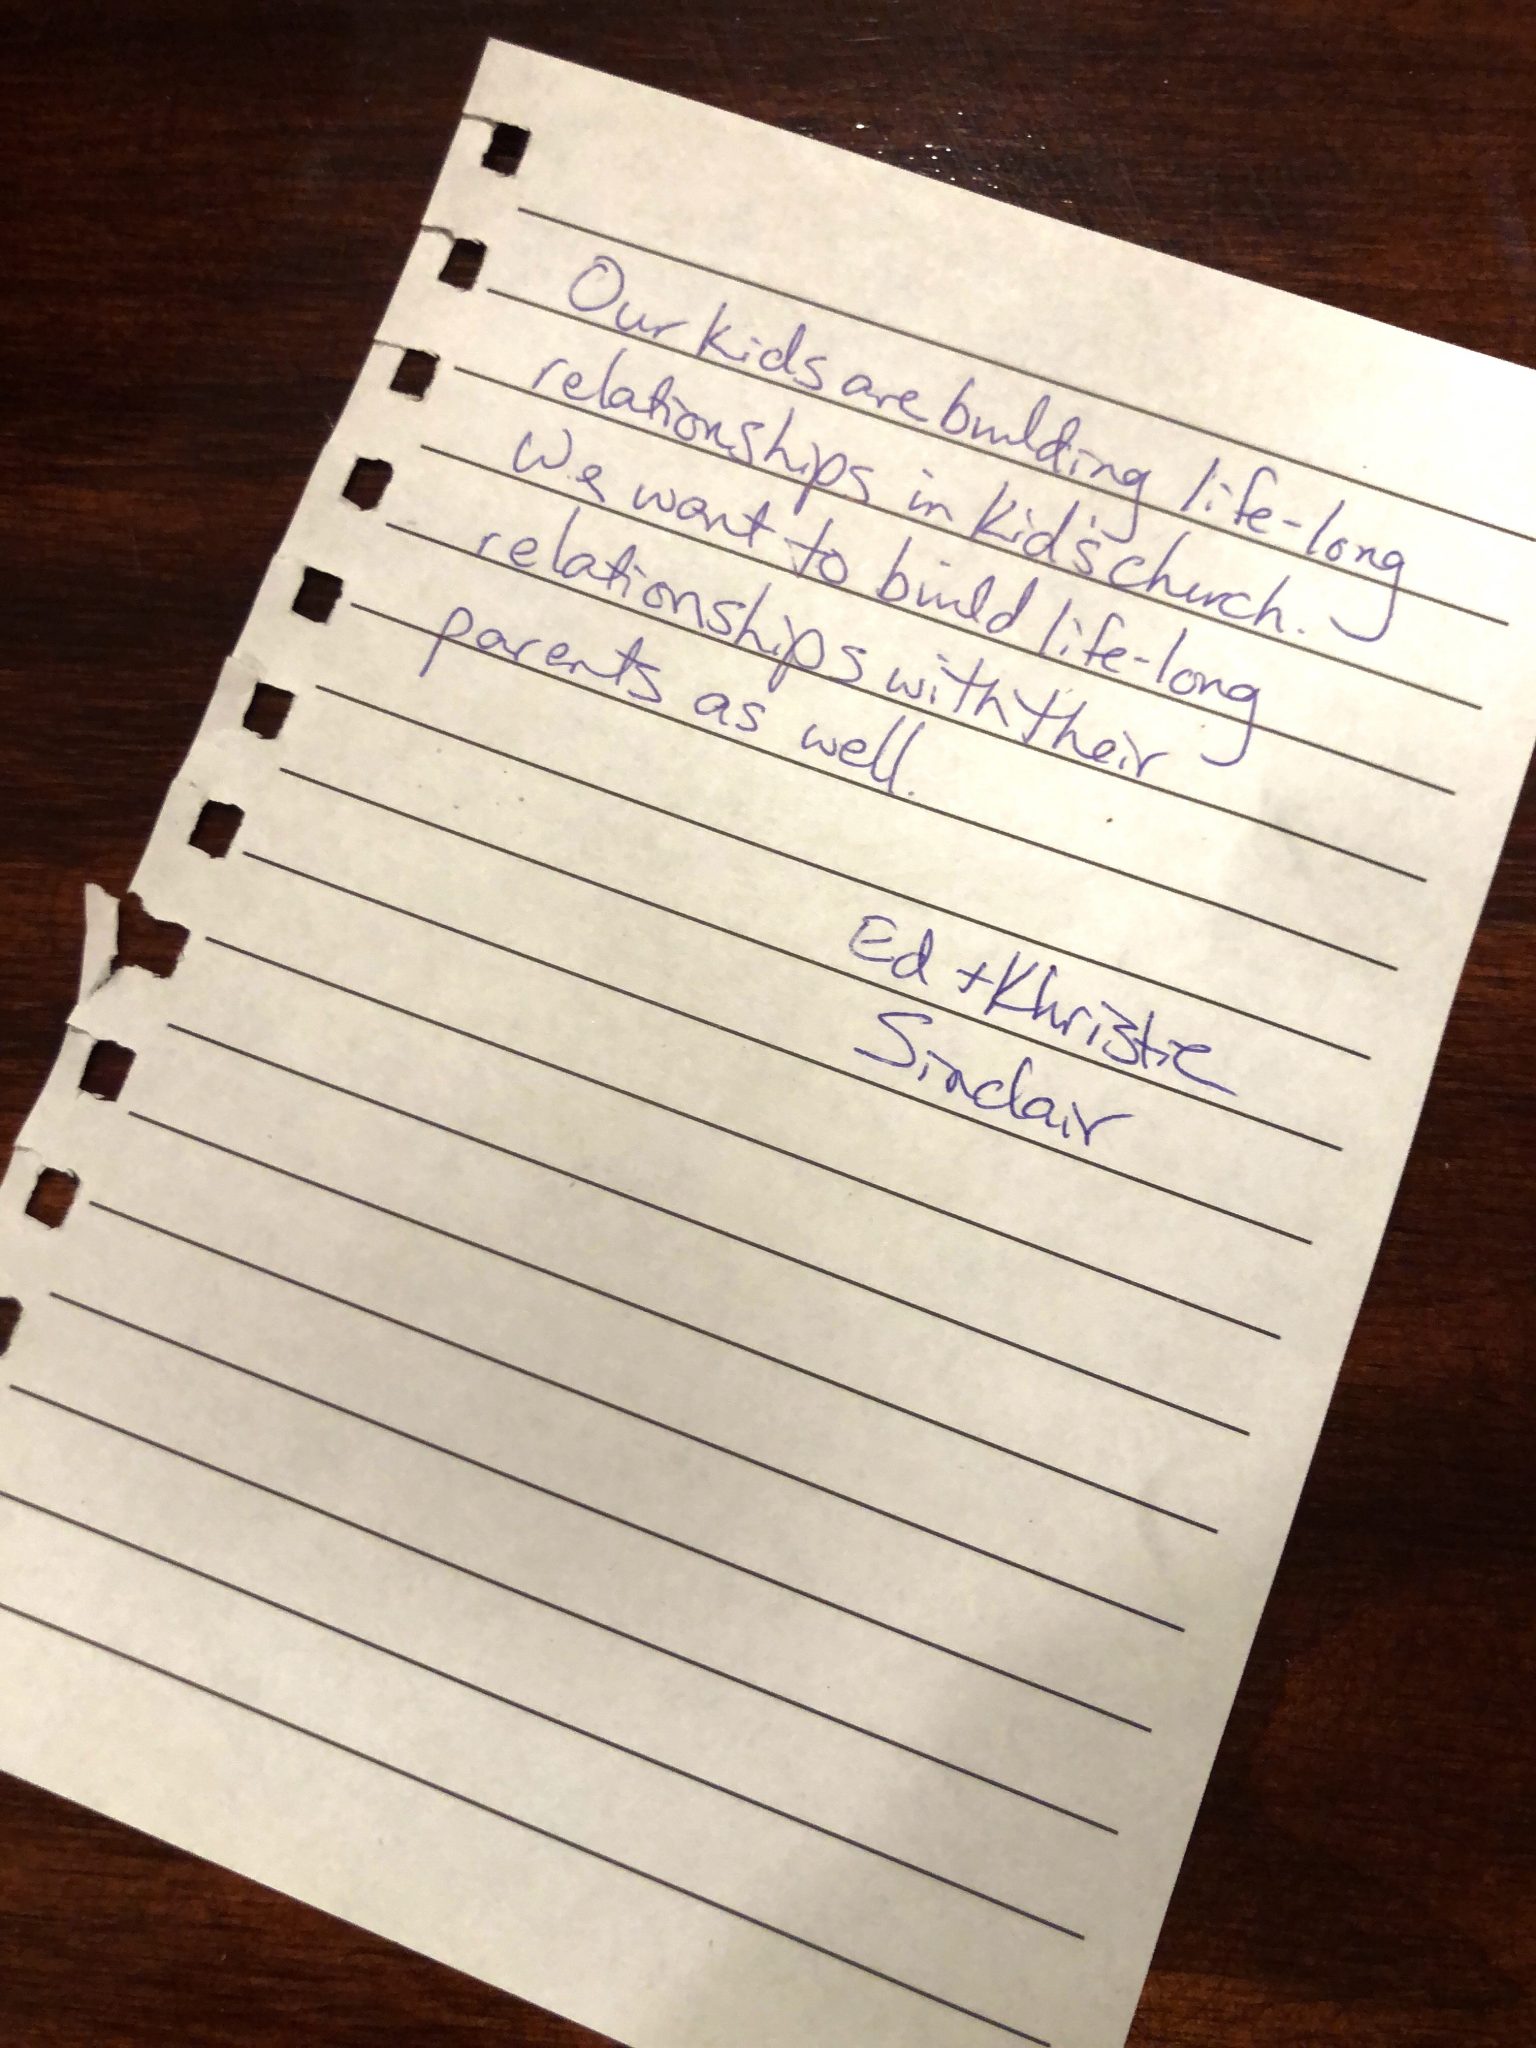 Our kids are building life-long
relationships in kid's church.
We want to build life-long
relationships with their
parents as well.
Ed + Khristie
Sinclair